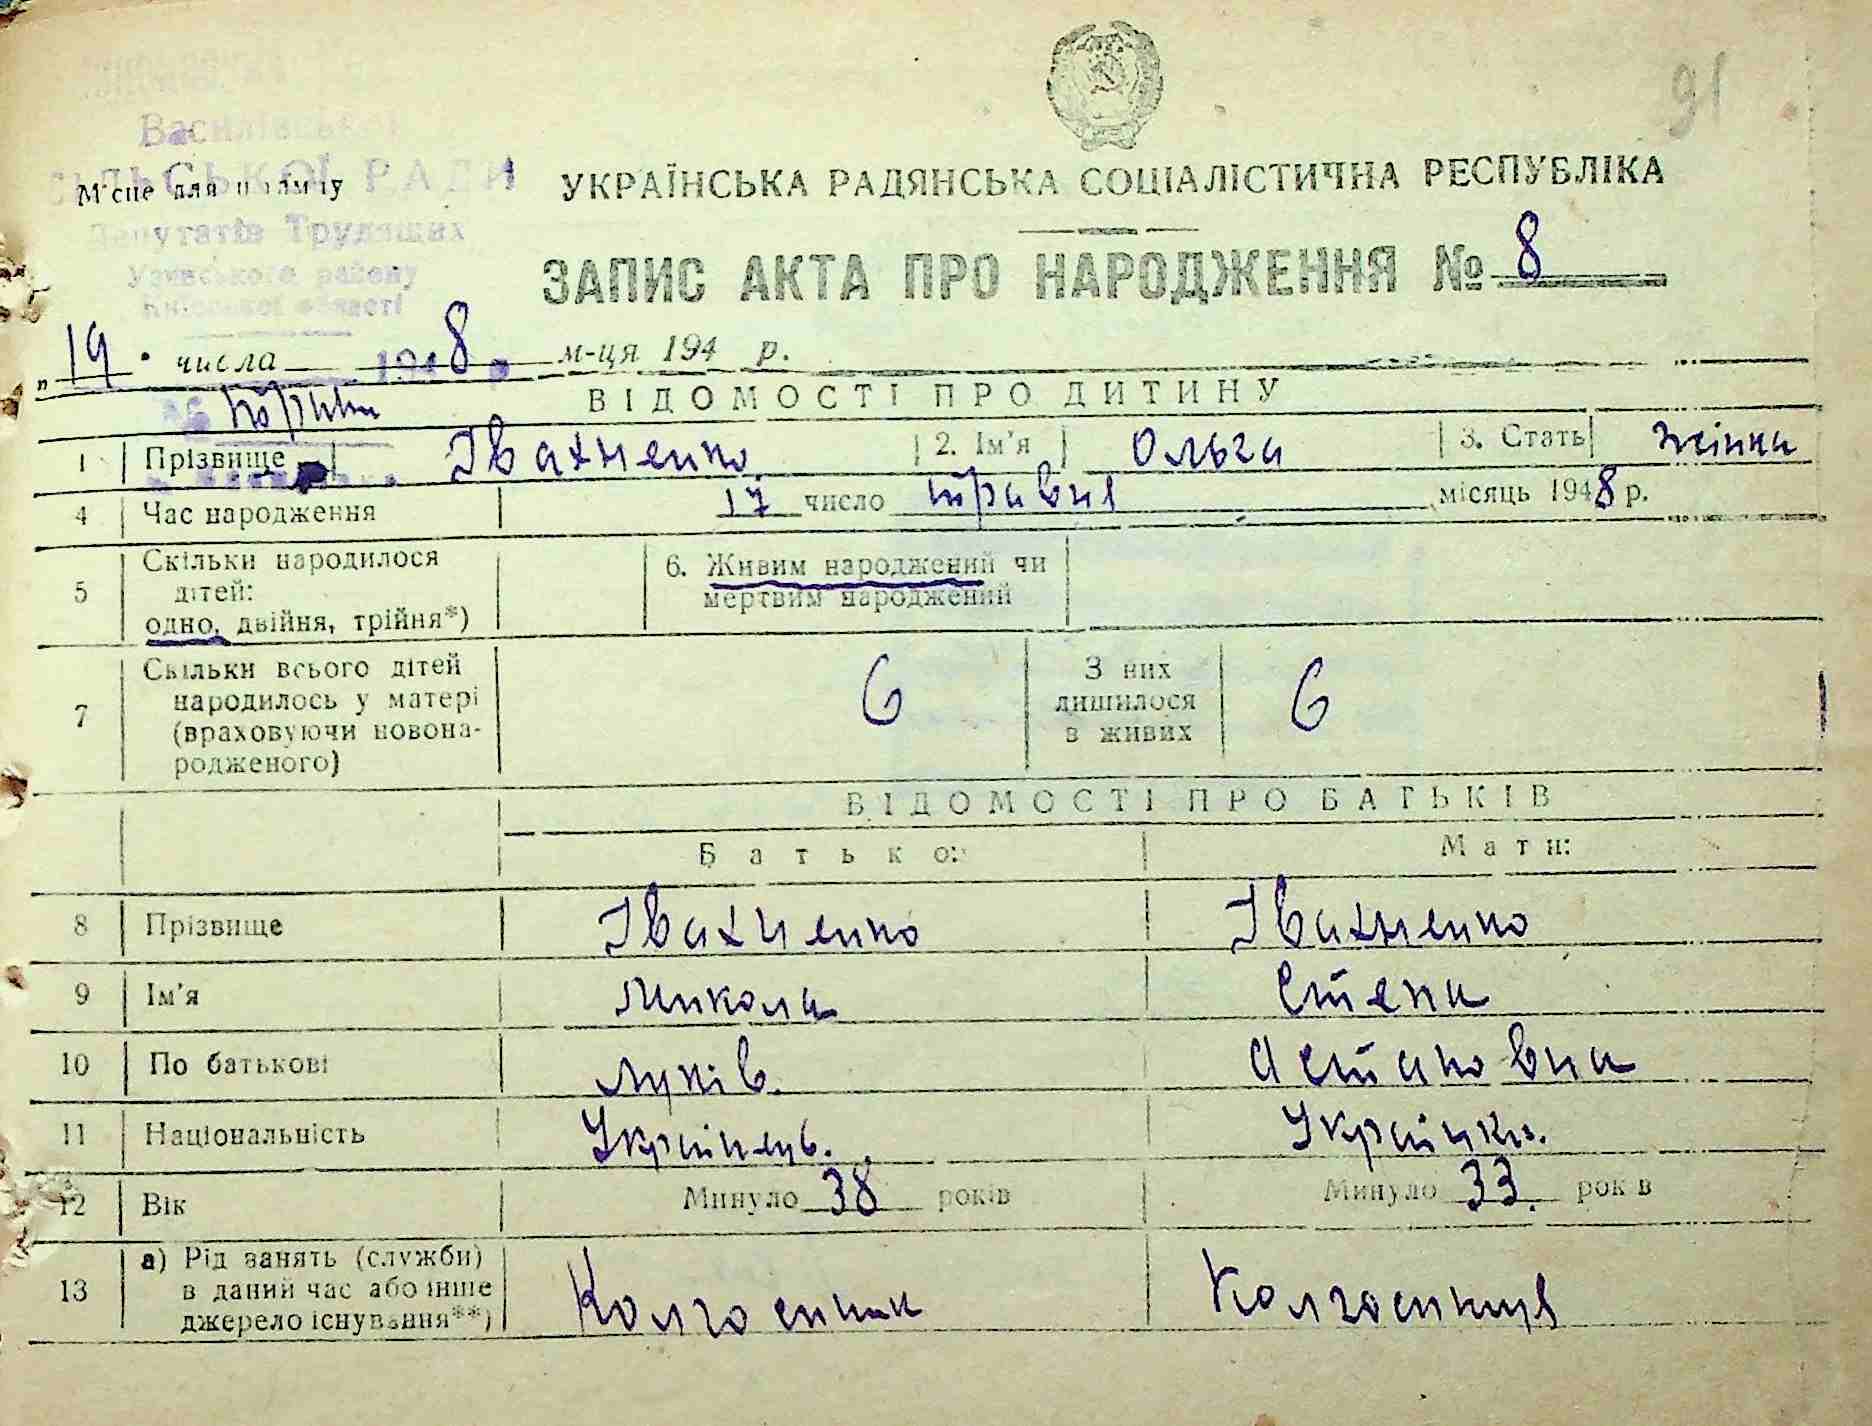 91
Василівської
СІЛЬСЬКОЇ РАДИ
Місце для штампу
Депутатів Трудящих
Узинського району
Київської області
УКРАЇНСЬКА РАДЯНСЬКА СОЦІАЛІСТИЧНА РЕСПУБЛІКА
ЗАПИС АКТА ПРО НАРОДЖЕННЯ № 8
„19" числа 1948 р. м-ця 194 р.
ВІДОМОСТІ ПРО ДИТИНУ
1 Прізвище Івахненко 2. Ім'я Ольга 3. Стать жінка
4 Час народження 17 число травня місяць 1948 р.
5 Скільки народилося дітей: одно, двійня, трійня*)
6. Живим народжений чи мертвим народжений
7 Скільки всього дітей народилось у матері (враховуючи новона-
родженого) 6 З них лишилося в живих 6
ВІДОМОСТІ ПРО БАТЬКІВ
Батько: Мати:
8 Прізвище Івахненко Івахненко
9 Ім'я Микола Степа
10 По батькові Луків. Астаповна
11 Національність Українець. Українка.
12 Вік Минуло 38 років Минуло 33. років
13 а) Рід занять (служби)
в даний час або інше
джерело існування**) Колгоспник Колгоспниця